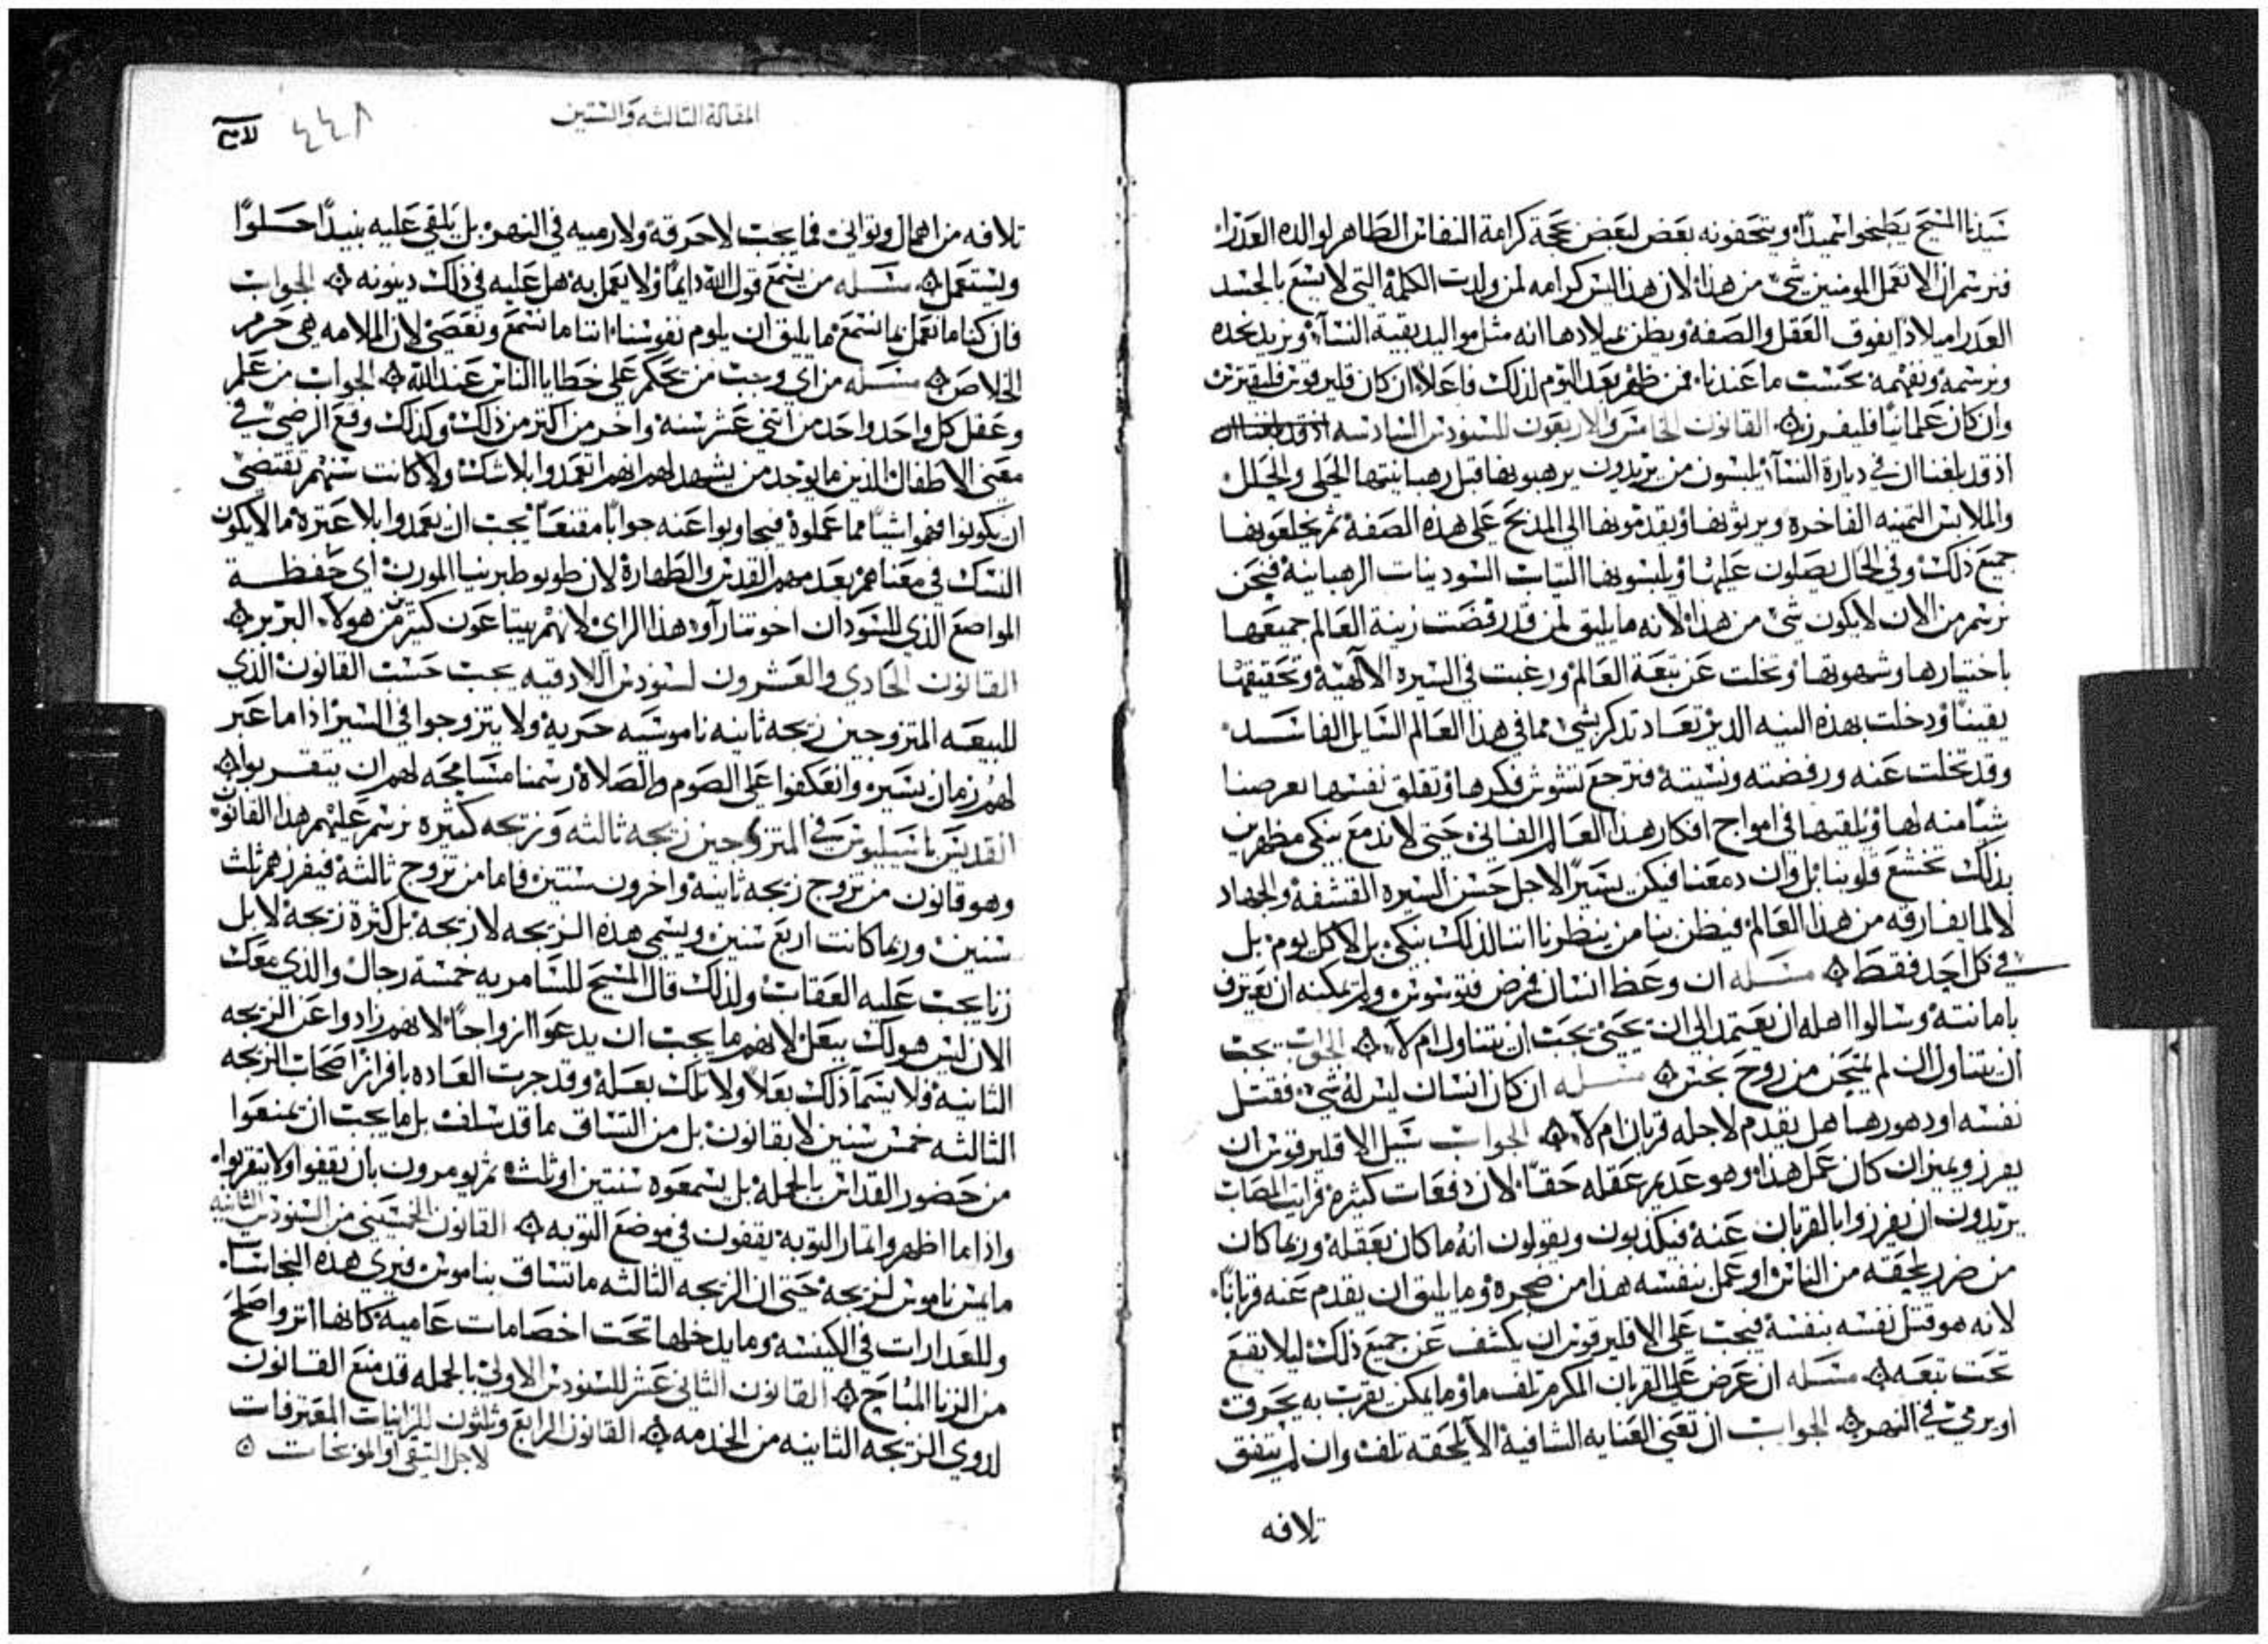 سيدنا المسيح يطبخوا سميدًا، ويتحفونه بعض لبعض بحجة كرامة النفاس الطاهر لوالده العذرا،
فنرسم ان لا تعمل المومنين شي من هذا، لان هذا ليس كرامه لمن ولدت الكلمة التي لا يسع بالجسد
العدرا ميلادًا يفوق العقل والصفة، ويظن بميلادها انه مثل مواليد بقية النسآ، ونريد نحده
ونرسمه ونفهمه بحسب ما عندنا، فمن ظفر بعد اليوم لذلك فاعلاً، ان كان قليرقوس فليقترس
وان كان عَلمانيًا فليفرز ۞ القانون الخامس والاربعون للسنودس السادسه
اذ قد بلغنا ان في ديارة النسآ، يلبسون من يريدون يرهبونها قبل رهبانيتها الحلى والحلل
والملابس الثمينه الفاخرة ويزينونها ويقدمونها الى المذبح على هذه الصفة، ثم يخلعونها
جميع ذلك، وفي الحال يصلون عليها، ويلبسونها التياب السودينات الرهبانية، فنحن
نرسم من الان لا يكون شي من هذا، لانه ما يليق لمن قد رفضت زينة العالم جميعها
باختيارها وشهوتها، وتخلت عن تبعة العالم، ورغبت في السيره الآلهية، وتحقيقها
يقينًا، ودخلت بهذه النيه الدير تعاد تدكر بشي مما في هذا العالم السايل الفاسد،
وقد تخلت عنه ورفضته ونسيتة، فترجع تشوش فكرها، وتقلق نفسها بعرضنا
شيًا منه لها، ونلقيها في امواج افكار هذا العالم الفاني، حتى لا تدمع تبكي مظهرين
بذلك تخشع قلوبنا، بل وان دمعنا فيكن يسيرًا لاجل حسن السيره القشفة والجهاد
لا لما يفارقه من هذا العالم، فيظن بنا من ينظرنا اننا لذلك نبكي، بل لا كل يوم، بل
في كل احد فقط ۞ مسَله ان وعظ انسان فمرض فتوسوس، ولم يمكنه ان يعترف
بامانته، وسالوا اهله ان يعتمد الى ان يحيى يجب ان يتناول ام لا، ۞ الجواب يجب
ان يتناول ان لم يمتحن من روح نجس ۞ مسَله ان كان انسان ليس له شي، فقتل
نفسه او دهورها هل يقدم لاجله قربان ام لا، ۞ الجواب سَبيل الاقليرقوس ان
يفرز ويميز ان كان عمل هذا، وهو عديم عقله حقًا، لان دفعات كثيرة، قرايب المصاب
يريدون ان يفرزوا بالقربان عنه، فيكذبون ويقولون انه ما كان بعقله، وربما كان
من ضرر لحقه من الناس، او عمل بنفسه هذا من ضجرة، وما يليق ان يقدم عنه قربانًا،
لانه هو قتل نفسه بنفسة، فيجب على الاقليرقوس ان يكشف عن جميع ذلك، ليلا يقع
تحت تبعه ۞ مسَله ان عرض على القربان المكرم تلف ما، وما يمكن يقرب به يحرق
او يرمي في النهر ۞ الجواب ان تعني العنايه الشافية الا يلحقه تلف، وان لم يتفق
تلافه
المقالة الثالثه والستين
٤٤٨
تلافه من اهمال وتواني، فما يجب لا حرقة، ولا رميه في النهر، بل يلقي عليه نبيذًا حلوًا
ويستعمل ۞ مسَله من يسمع قول الله دايمًا، ولا يعمل به، هل عليه في ذلك دينونه ۞ الجواب
فان كنا ما نعمل بما نسمع ما يليق ان يلوم نفوسنا، اننا ما نسمع ونعصى، لان الملامه هي حرم
الخلاص ۞ مسَله من اي وجب من يحكم على خطايا الناس عند الله ۞ الجواب من علم
وعقل كل واحد واحد من اثني عشر سنه، واخر من اكثر من ذلك، وكذلك وقع الرضى في
معنى الاطفال الذين ما يوجد من يشهد لهم انهم اتعمدوا بلا شك، ولا كانت سنهم تقتضى
ان يكونوا فهموا شيًا مما عملوة فيجاوبوا عنه جوابًا مقنعًا، يجب ان يعمدوا بلا عترة، ما لا يكون
الشك في معناهم يعدمهم القدس والطهارة، لان طوبوطيرنيا المورن، اي حفظة
المواضع الذي للسودان اخوتنا رآو، هذا الراي، لانهم يبتاعون كثير من هولا، البربر ۞
القانون الحادي والعشرون لسنودس اللادقيه يجب حسب القانون الذي
للبيعه المتزوجين زيجه ثانيه ناموسيه حرية، ولا يتزوجوا في السير، اذا ما عبر
لهم زمان يسير، وانعكفوا على الصوم والصلاة، رسمنا مسَامحه لهم ان يتقربوا ۞
القديس باسيليوس في المتزوجين زيجه ثالثه وزيجه كثيره نرسم عليهم هذا القانون
وهو قانون من تزوج زيجه ثانية، واخرون سنتين، فاما من تزوج ثالثة، فيفرزهم ثلث
سنين، وربما كانت اربع سنين، ويسمى هذه الزيجه لا زيجه، بل كثرة زيجة، لا بل
زنا يجب عليه العقاب، ولذلك قال المسيح للسامريه خمسة رجال والذي معك
الان ليس هو لك ببعل، لانهم ما يجب ان يدعوا ازواجًا، لانهم زادوا عن الزيجه
الثانيه، ولا يسمآ ذلك بعلاً ولا تلك بعلة، وقد جرت العاده بافراز اصحاب الزيجه
الثالثه خمس سنين لا بقانون، بل من اتساق ما قد سلف، بل ما يجب ان يمنعوا
من حضور القداس بالجملة، بل يسمعوه سنتين او ثلث، ثم يومرون بان يقفوا ولا يتقربوا،
واذا ما اظهروا ثمار التوبة، يقفون في موضع التوبه ۞ القانون الخمسيني من السنودس الثانيه
ما ليس ناموس لزيجه، حتى ان الزيجه الثالثه ما تنساق بناموس، فنرى هذه النجاسات
وللعدارات في الكنيسه، وما يدخلها تحت اخصامات عامية، كانها اتر واصلح
من الزنا المباح ۞ القانون الثاني عشر للسنودس الاولى، بالجمله قد منع القانون
لذوي الزيجه الثانيه من الخدمه ۞ القانون الرابع وثلثون للزانيات المعترفات
لاجل التقى او الموبخات ۞